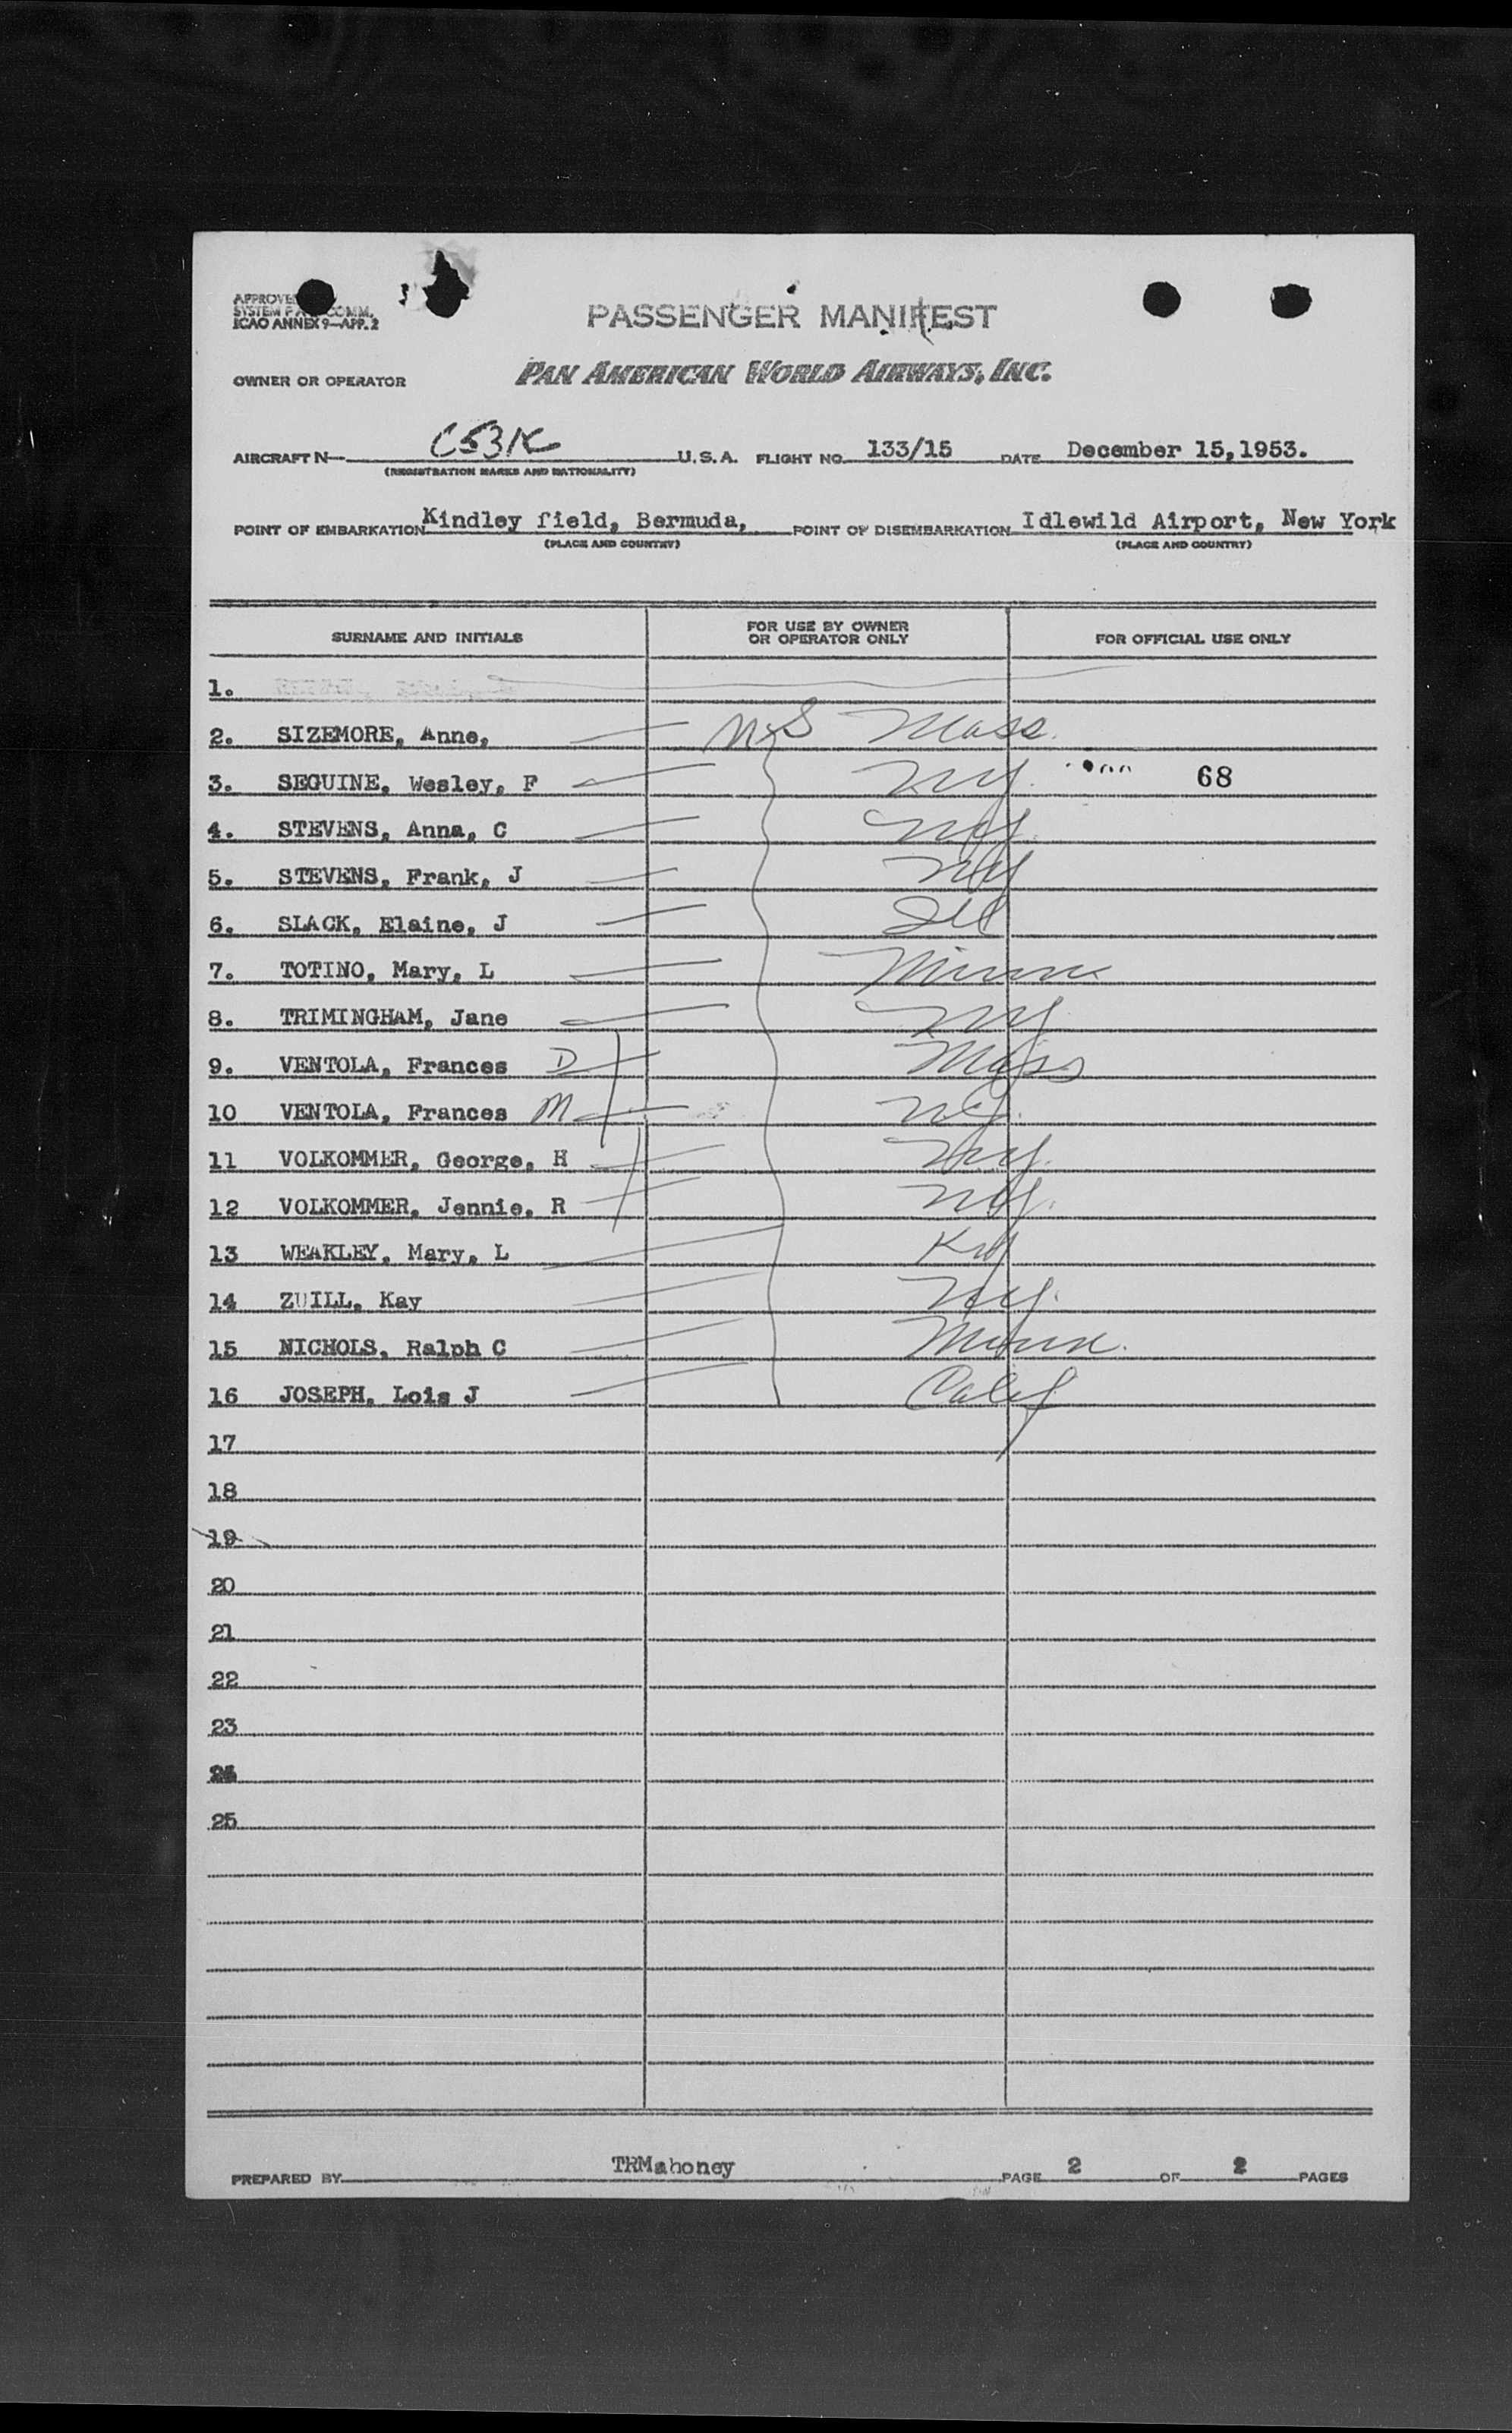 PASSENGER MANIFEST
SYSTEM
ICAO ANNEX 9—APP. 2
OWNER OR OPERATOR PAN AMERICAN WORLD AIRWAYS, INC.
AIRCRAFT N— C531K U.S.A. FLIGHT NO. 133/15 DATE December 15,1953.
(REGISTRATION MARKS AND NATIONALITY)
POINT OF EMBARKATION Kindley field, Bermuda, POINT OF DISEMBARKATION Idlewild Airport, New York
(PLACE AND COUNTRY) (PLACE AND COUNTRY)
SURNAME AND INITIALS FOR USE BY OWNER OR OPERATOR ONLY FOR OFFICIAL USE ONLY
1.
2. SIZEMORE, Anne, Mass.
3. SEGUINE, Wesley, F NY. 68
4. STEVENS, Anna, C NY.
5. STEVENS, Frank, J NY
6. SLACK, Elaine, J Ill
7. TOTINO, Mary, L Minn
8. TRIMINGHAM, Jane NY
9. VENTOLA, Frances D Mass
10 VENTOLA, Frances M
11 VOLKOMMER, George, H NY.
12 VOLKOMMER, Jennie, R NY.
13 WEAKLEY, Mary, L Ky
14 ZUILL, Kay NY.
15 NICHOLS, Ralph C Minn.
16 JOSEPH, Lois J Calif
17
18
19
20
21
22
23
24
25
PREPARED BY TRMahoney PAGE 2 OF 2 PAGES